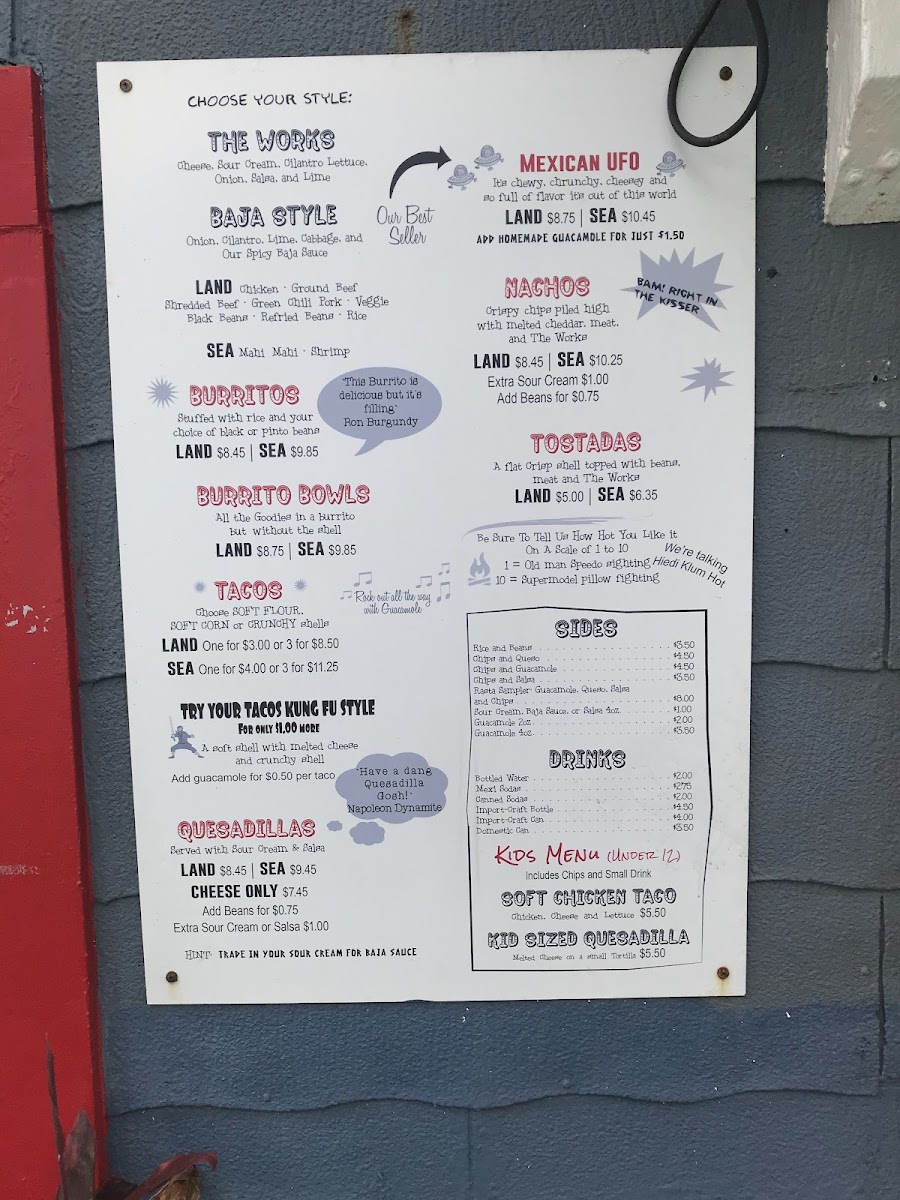 CHOOSE YOUR STYLE:
THE WORKS
Cheese, Sour Cream, Cilantro Lettuce,
Onion, Salsa, and Lime
BAJA STYLE
Onion, Cilantro, Lime, Cabbage, and
Our Spicy Baja Sauce
Our Best
Seller
LAND Chicken · Ground Beef
Shredded Beef · Green Chili Pork · Veggie
Black Beans · Refried Beans · Rice
SEA Mahi Mahi · Shrimp
BURRITOS
Stuffed with rice and your
choice of black or pinto beans
LAND $8.45 | SEA $9.85
"This Burrito is
delicious but it's
filling"
Ron Burgundy
BURRITO BOWLS
All the Goodies in a burrito
but without the shell
LAND $8.75 | SEA $9.85
TACOS
Choose SOFT FLOUR,
SOFT CORN or CRUNCHY shells
LAND One for $3.00 or 3 for $8.50
SEA One for $4.00 or 3 for $11.25
Rock out all the way
with Guacamole
TRY YOUR TACOS KUNG FU STYLE
FOR ONLY $1.00 MORE
A soft shell with melted cheese
and crunchy shell
Add guacamole for $0.50 per taco
"Have a dang
Quesadilla
Gosh!"
Napoleon Dynamite
QUESADILLAS
Served with Sour Cream & Salsa
LAND $8.45 | SEA $9.45
CHEESE ONLY $7.45
Add Beans for $0.75
Extra Sour Cream or Salsa $1.00
HINT: TRADE IN YOUR SOUR CREAM FOR BAJA SAUCE
MEXICAN UFO
Its chewy, chrunchy, cheesey and
so full of flavor its out of this world
LAND $8.75 | SEA $10.45
ADD HOMEMADE GUACAMOLE FOR JUST $1.50
NACHOS
Crispy chips piled high
with melted cheddar, meat,
and The Works
LAND $8.45 | SEA $10.25
Extra Sour Cream $1.00
Add Beans for $0.75
BAM! RIGHT IN
THE KISSER
TOSTADAS
A flat Crisp shell topped with beans,
meat and The Works
LAND $5.00 | SEA $6.35
Be Sure To Tell Us How Hot You Like it
On A Scale of 1 to 10
1 = Old man Speedo sighting
10 = Supermodel pillow fighting
We're talking
Hiedi Klum Hot
SIDES
Rice and Beans $3.50
Chips and Queso $4.50
Chips and Guacamole $4.50
Chips and Salsa $3.50
Rasta Sampler: Guacamole, Queso, Salsa
and Chips $8.00
Sour Cream, Baja Sauce, or Salsa 4oz. $1.00
Guacamole 2oz. $2.00
Guacamole 4oz. $3.50
DRINKS
Bottled Water $2.00
Mexi Sodas $2.75
Canned Sodas $2.00
Import-Craft Bottle $4.50
Import-Craft Can $4.00
Domestic Can $3.50
KIDS MENU (UNDER 12)
Includes Chips and Small Drink
SOFT CHICKEN TACO
Chicken, Cheese and Lettuce $5.50
KID SIZED QUESADILLA
Melted Cheese on a small Tortilla $5.50